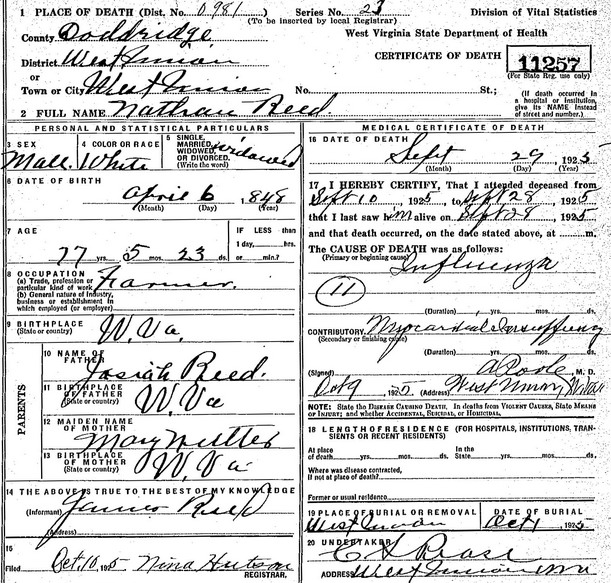 1 PLACE OF DEATH (Dist. No. 0981) Series No. 23 Division of Vital Statistics
(To be inserted by local Registrar)
County Doddridge West Virginia State Department of Health
District West Union CERTIFICATE OF DEATH 11257
or (For State Reg. use only)
Town or City West Union No. St.; (If death occurred in a hospital or institution, give its NAME instead of street and number.)
2 FULL NAME Nathan Reed
PERSONAL AND STATISTICAL PARTICULARS
3 SEX Male 4 COLOR OR RACE White 5 SINGLE, MARRIED, WIDOWED, OR DIVORCED. (Write the word) widowed
6 DATE OF BIRTH April 6, 1848
(Month) (Day) (Year)
7 AGE 77 yrs. 5 mos. 23 ds. IF LESS than 1 day, hrs. or min.?
8 OCCUPATION
(a) Trade, profession or particular kind of work Farmer
(b) General nature of industry, business or establishment in which employed (or employer)
9 BIRTHPLACE W. Va.
(State or country)
PARENTS
10 NAME OF FATHER Josiah Reed.
11 BIRTHPLACE OF FATHER W. Va
(State or country)
12 MAIDEN NAME OF MOTHER Mary
13 BIRTHPLACE OF MOTHER W. Va
(State or country)
14 THE ABOVE IS TRUE TO THE BEST OF MY KNOWLEDGE
(Informant) James Reed
(Address)
15
Filed Oct. 10, 1925 Nina Hutson
REGISTRAR.
MEDICAL CERTIFICATE OF DEATH
16 DATE OF DEATH
Sept 29, 1925
(Month) (Day) (Year)
17 I HEREBY CERTIFY, That I attended deceased from
Sept 10, 1925, to Sept 28, 1925
that I last saw him alive on Sept 28, 1925
and that death occurred, on the date stated above, at m.
The CAUSE OF DEATH was as follows:
(Primary or beginning cause) Influenza
11
(Duration) yrs. mos. ds.
CONTRIBUTORY Myocardial Insufficiency
(Secondary or finishing cause)
(Duration) yrs. mos. ds.
(Signed) A Poole, M. D.
Oct 9 1925 (Address) West Union, W Va
NOTE: State the DISEASE CAUSING DEATH. In deaths from VIOLENT CAUSES, State MEANS OF INJURY; and whether ACCIDENTAL, SUICIDAL, or HOMICIDAL.
18 LENGTH OF RESIDENCE (FOR HOSPITALS, INSTITUTIONS, TRANSIENTS OR RECENT RESIDENTS)
At place of death yrs. mos. ds. In the State yrs. mos. ds.
Where was disease contracted, if not at place of death?
Former or usual residence
19 PLACE OF BURIAL OR REMOVAL West Union DATE OF BURIAL Oct 1, 1925
20 UNDERTAKER C S Pease
ADDRESS West Union W Va